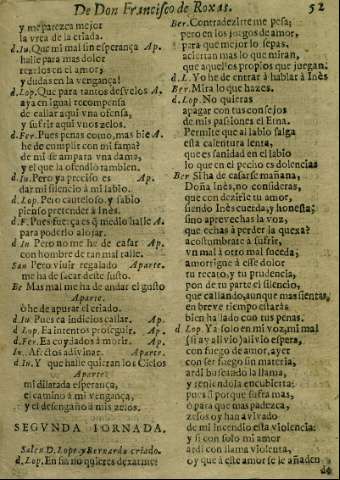 De Don Francisco de Roxas. 52
y me parezca mejor
la vrca de la criada.
d.Iu. Que mi mal sin esperança Ap.
halle para mas dolor
zelos en el amor,
y dudas en la vengança!
d.Lop. Que para tantos desvelos A.
aya en igual recompensa
de callar aqui vna ofensa,
y sufrir aqui vnos zelos.
d.Fer. Pues penas como, mas bie A.
he de cumplir con mi fama?
de mi se ampara vna dama,
y el que la ofendio tambien.
d.In. Pero ya preciso es Ap.
dar mi silencio à mi labio.
d.Lop. Pero cauteloso, y sabio
pienso pretender à Ines.
d.F. Pues fuerça es q̃ medio halle A.
para poderlo alojar.
d.In Pero no me he de casar Ap.
con hombre de tan mal talle.
San Pero viuir regalado Aparte.
me ha de sacar deste susto.
Be Mas mal me ha de andar el gusto
Aparte.
ò he de apurar el criado.
d.In Pues ea indicios callar. Ap.
d Lop. Ea intentos proseguir. Ap.
d.Fer. Ea cuydados à morir. Ap.
In. Afectos adivinar. Aparte.
d In. Y que halle quieran los Cielos
Aparte.
mi dilatada esperança,
el camino à mi vengança,
y el desengaño à mis zelos.
SEGVNDA IORNADA.
Salen D. Lope, y Bernardo criado.
d.Lop. En fin no quieres dexarme?
Ber. Contradezirte me pesa;
pero en los juegos de amor,
para que mejor lo sepas,
aciertan mas lo que miran,
que aquellos propios que juegan.
d.L. Yo he de entrar à hablar à Inès
Ber. Mira lo que hazes.
d.Lop. No quieras
apagar con tus consejos
de mis pasiones el Etna.
Permite que al labio salga
esta calentura lenta,
que es sanidad en el labio
lo que en el pecho es dolencias
Ber Si ha de casarse mañana,
Doña Inès, no consideras,
que con dezirle tu amor,
siendo Inès cuerda, y honesta;
sino aprovechas la voz,
que echas à perder la quexa?
acostumbrate à sufrir,
vn mal à otro mal suceda;
amortigue à este dolor
tu recato, y tu prudencia,
pon de tu parte el silencio,
que callando, aunque mas sientas,
en breve tiempo estarà
bien hallado con tus penas.
d Lop. Ya solo en mi voz, mi mal
(si ay alivio) alivio espera,
con fuego de amor, ayer
con ser fuego sin materia,
ardi buscando la llama,
y teniendola encubierta:
pues si porque sufra mas,
ò para que mas padezca,
zelos oy han avivado
de mi incendio esta violencia:
y si con solo mi amor
ardi con llama violenta,
oy que à este amor se le añaden
de